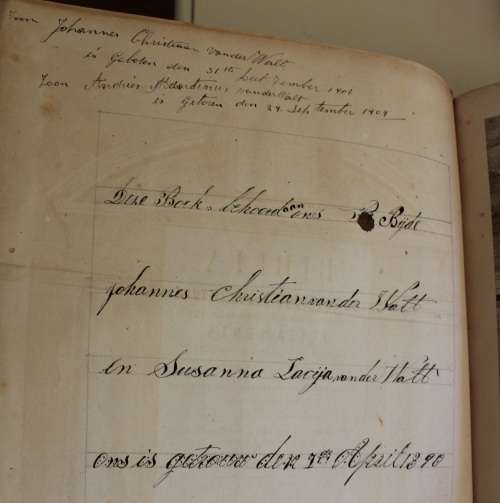 Zoon Johannes Christiaan van der Walt
is Geboten den 31ste 1906
Zoon Andries Martinus van der Walt
is Geboren den 24 September 1909
Dese Boek behoord aan ons Bijde
Johannes Christiean van der Walt
en Susanna Lacija van der Walt
ons is getrouw den 7de April 1890